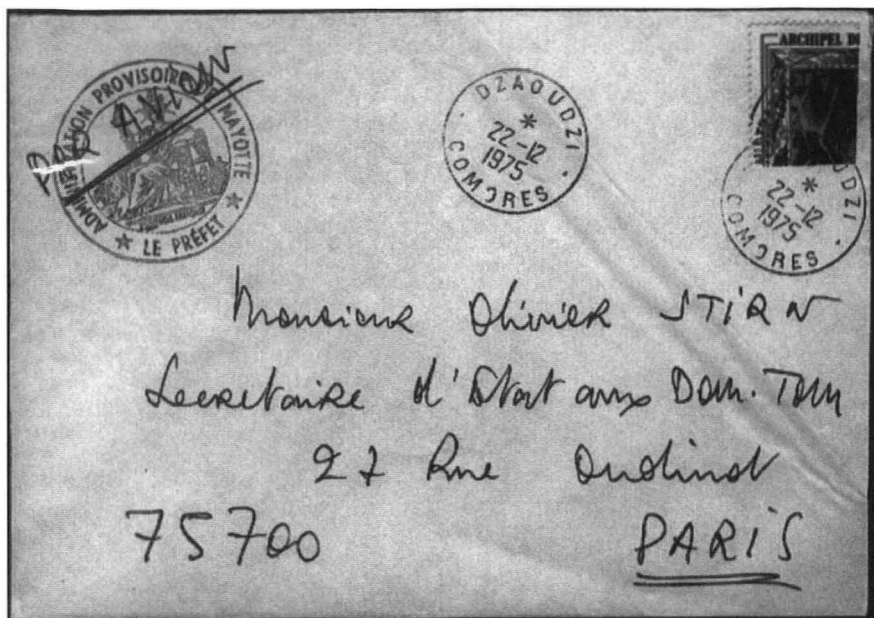 ADMINISTRATION PROVISOIRE DE MAYOTTE
★ LE PRÉFET ★
PAR AVION
DZAOUDZI
*
22-12
1975
COMORES
ARCHIPEL D
OUDZI
*
22-12
1975
COMORES
Monsieur Olivier STIRN
Secretaire d'Etat aux Dom. Tom
27 Rue Oudinot
75700 PARIS